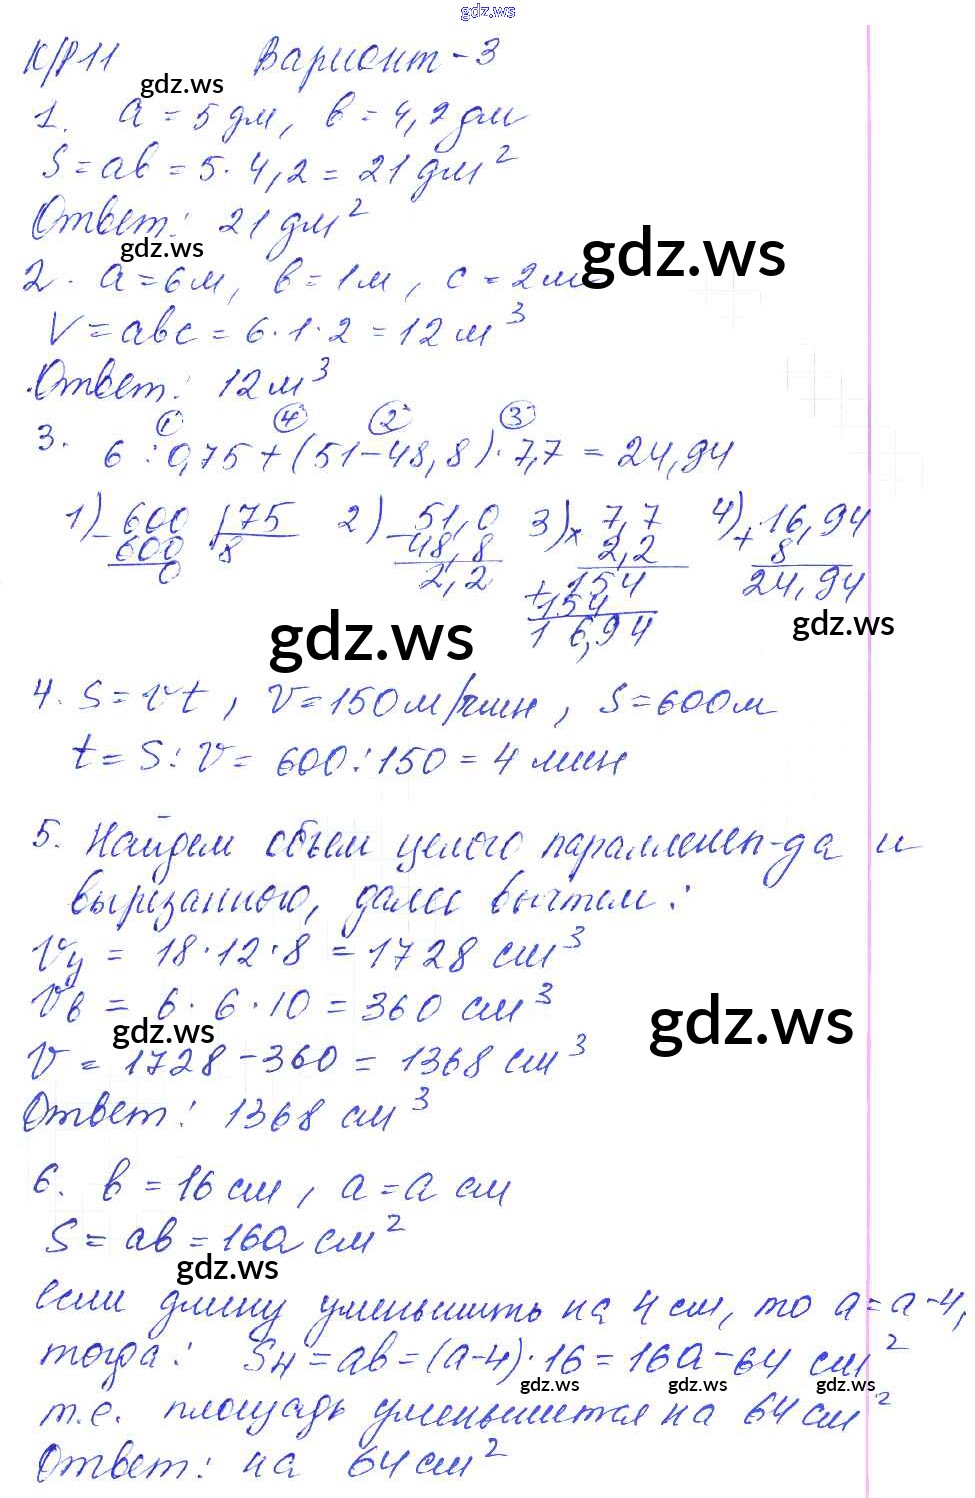 gdz.ws
К/р 11 Вариант - 3
gdz.ws
1. a = 5 дм, в = 4,2 дм
S = aв = 5 · 4,2 = 21 дм²
Ответ: 21 дм²
gdz.ws
gdz.ws
2. a = 6 м, в = 1 м, c = 2 м
V = aвc = 6 · 1 · 2 = 12 м³
Ответ: 12 м³
① ④ ② ③
3. 6 : 0,75 + (51 - 48,8) · 7,7 = 24,94
1) - 600 | 75 2) - 51,0 3) × 7,7 4) + 16,94
600 8 48,8 2,2 8
0 2,2 + 154 24,94
154
16,94
gdz.ws
gdz.ws
4. S = vt, V = 150 м/мин, S = 600 м
t = S : V = 600 : 150 = 4 мин
5. Найдем объем целого параллелеп-да и
вырезанного, далее вычтем:
Vц = 18 · 12 · 8 = 1728 см³
Vв = 6 · 6 · 10 = 360 см³
gdz.ws
gdz.ws
V = 1728 - 360 = 1368 см³
Ответ: 1368 см³
6. в = 16 см, a = a см
S = aв = 16a см²
gdz.ws
если длину уменьшить на 4 см, то a = a - 4,
тогда: Sн = aв = (a - 4) · 16 = 16a - 64 см²
gdz.ws gdz.ws gdz.ws
т.е. площадь уменьшится на 64 см²
Ответ: на 64 см²